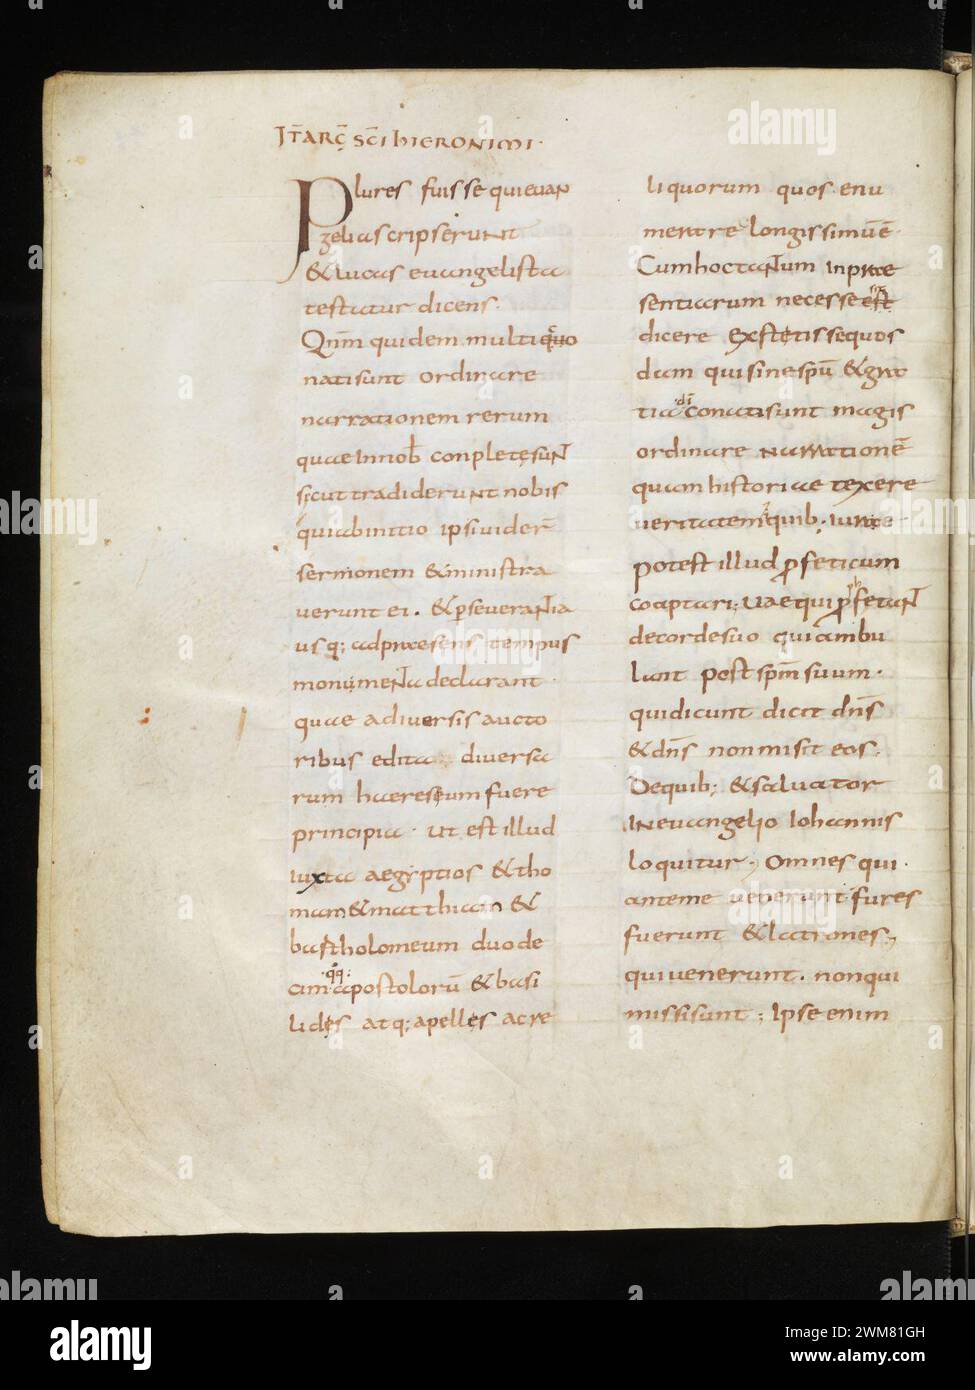 IT ARḠ SC̄I hIERONIMI·
Plures fuisse qui euan
gelia scripserunt
& lucas euangelista
testatur dicens.
Qn̄m quidem multi
nati sunt ordinare
narrationem rerum
quae in nob̄ conpletę sunt
sicut tradiderunt nobis
qui ab initio ipsi uider̄
sermonem & ministra
uerunt ei. & p̱seuerantia
usq; ad praesens tempus
monumenta declarant
quae a diuersis aucto
ribus edita diuersa
rum haereseum fuere
principia· Ut est illud
iuxta aegyptios & tho
mam & matthiam &
bartholomeum duode
cim qq: apostolorū & basi
lidęs atq; apellęs ac re
liquorum quos enu
merare longissimū ē·
Cum hoc tantum in prae
sentiarum necesse est
dicere exstetisse quos
dam qui sine sp̄u & gra
tia di conati sunt magis
ordinare narrationē
quam historiae texere
ueritatem quib· iure
potest illud p̱feticum
coaptari; Uae qui p̱fetant
de corde suo qui ambu
lant post sp̄m suum·
qui dicunt dicit dn̄s
& dn̄s non misit eos.
De quib; & saluator
IN euangelio Iohannis
loquitur; Omnes qui·
ante me uenerunt fures
fuerunt & latrones;
qui uenerunt. non qui
missi sunt; Ipse enim
alamy
Image ID: 2WM81GH
www.alamy.com